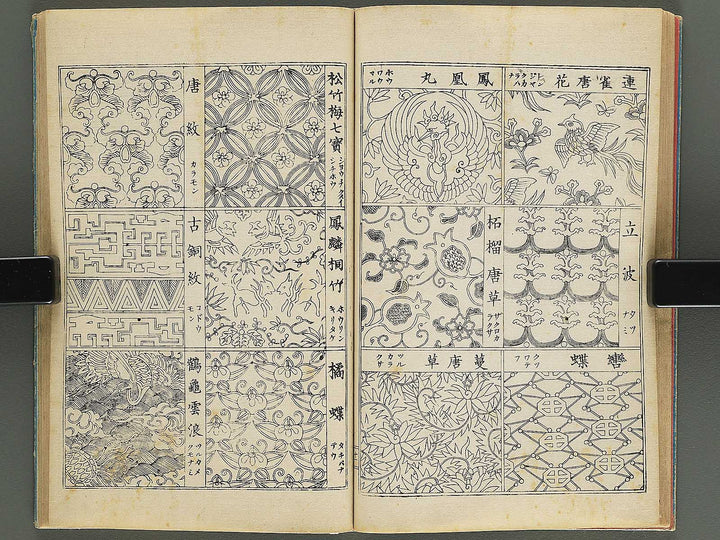 連雀唐花
レンジヤクカラハナ
鳳凰丸
ホウワウマル
立波
タツナミ
柘榴唐草
ザクロカラクサ
轡蝶
クツワテフ
蔓唐草
ツルカラクサ
松竹梅七寳
シヨウチクバイシチホウ
唐紋
カラモン
鳳麟桐竹
ホウリンキリタケ
古銅紋
コドウモン
橘蝶
タチバナテウ
鶴龜雲浪
ツルカメクモナミ